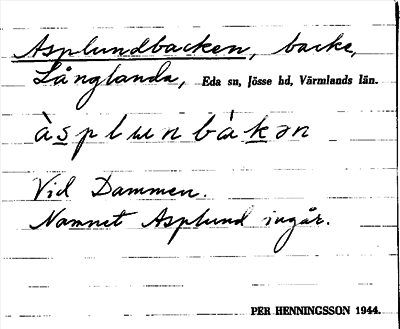 Asplundbacken, backe,
Långlanda, Eda sn, Jösse hd, Värmlands län.
àspluenbàkən
Vid Dammen.
Namnet Asplund ingår.
PER HENNINGSSON 1944.